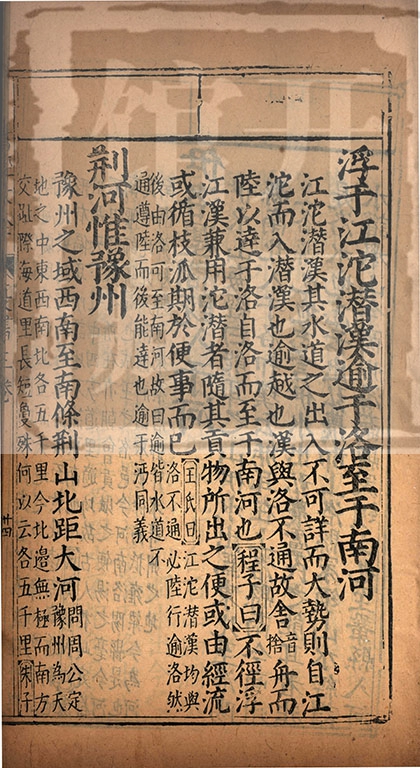 浮于江沱潛漢逾于洛至于南河
江沱潛漢其水道之出入不可詳而大勢則自江
沱而入潛漢也逾越也漢與洛不通故舍音捨舟而
陸以達于洛自洛而至于南河也程子曰不徑浮
江漢兼用沱潛者隨其貢物所出之便或由經流
或循枝派期於便事而已
王氏曰江沱潛漢均與
洛不通必陸行逾洛然
後由洛可至南河故曰逾皆水道不
通遵陸而後能達也逾于沔同義
荆河惟豫州
豫州之域西南至南條荆山北距大河
問周公定
豫州為天
地之中東西南北各五千里今北邊無極而南方
交趾際海道里長短夐殊何以云各五千里朱子